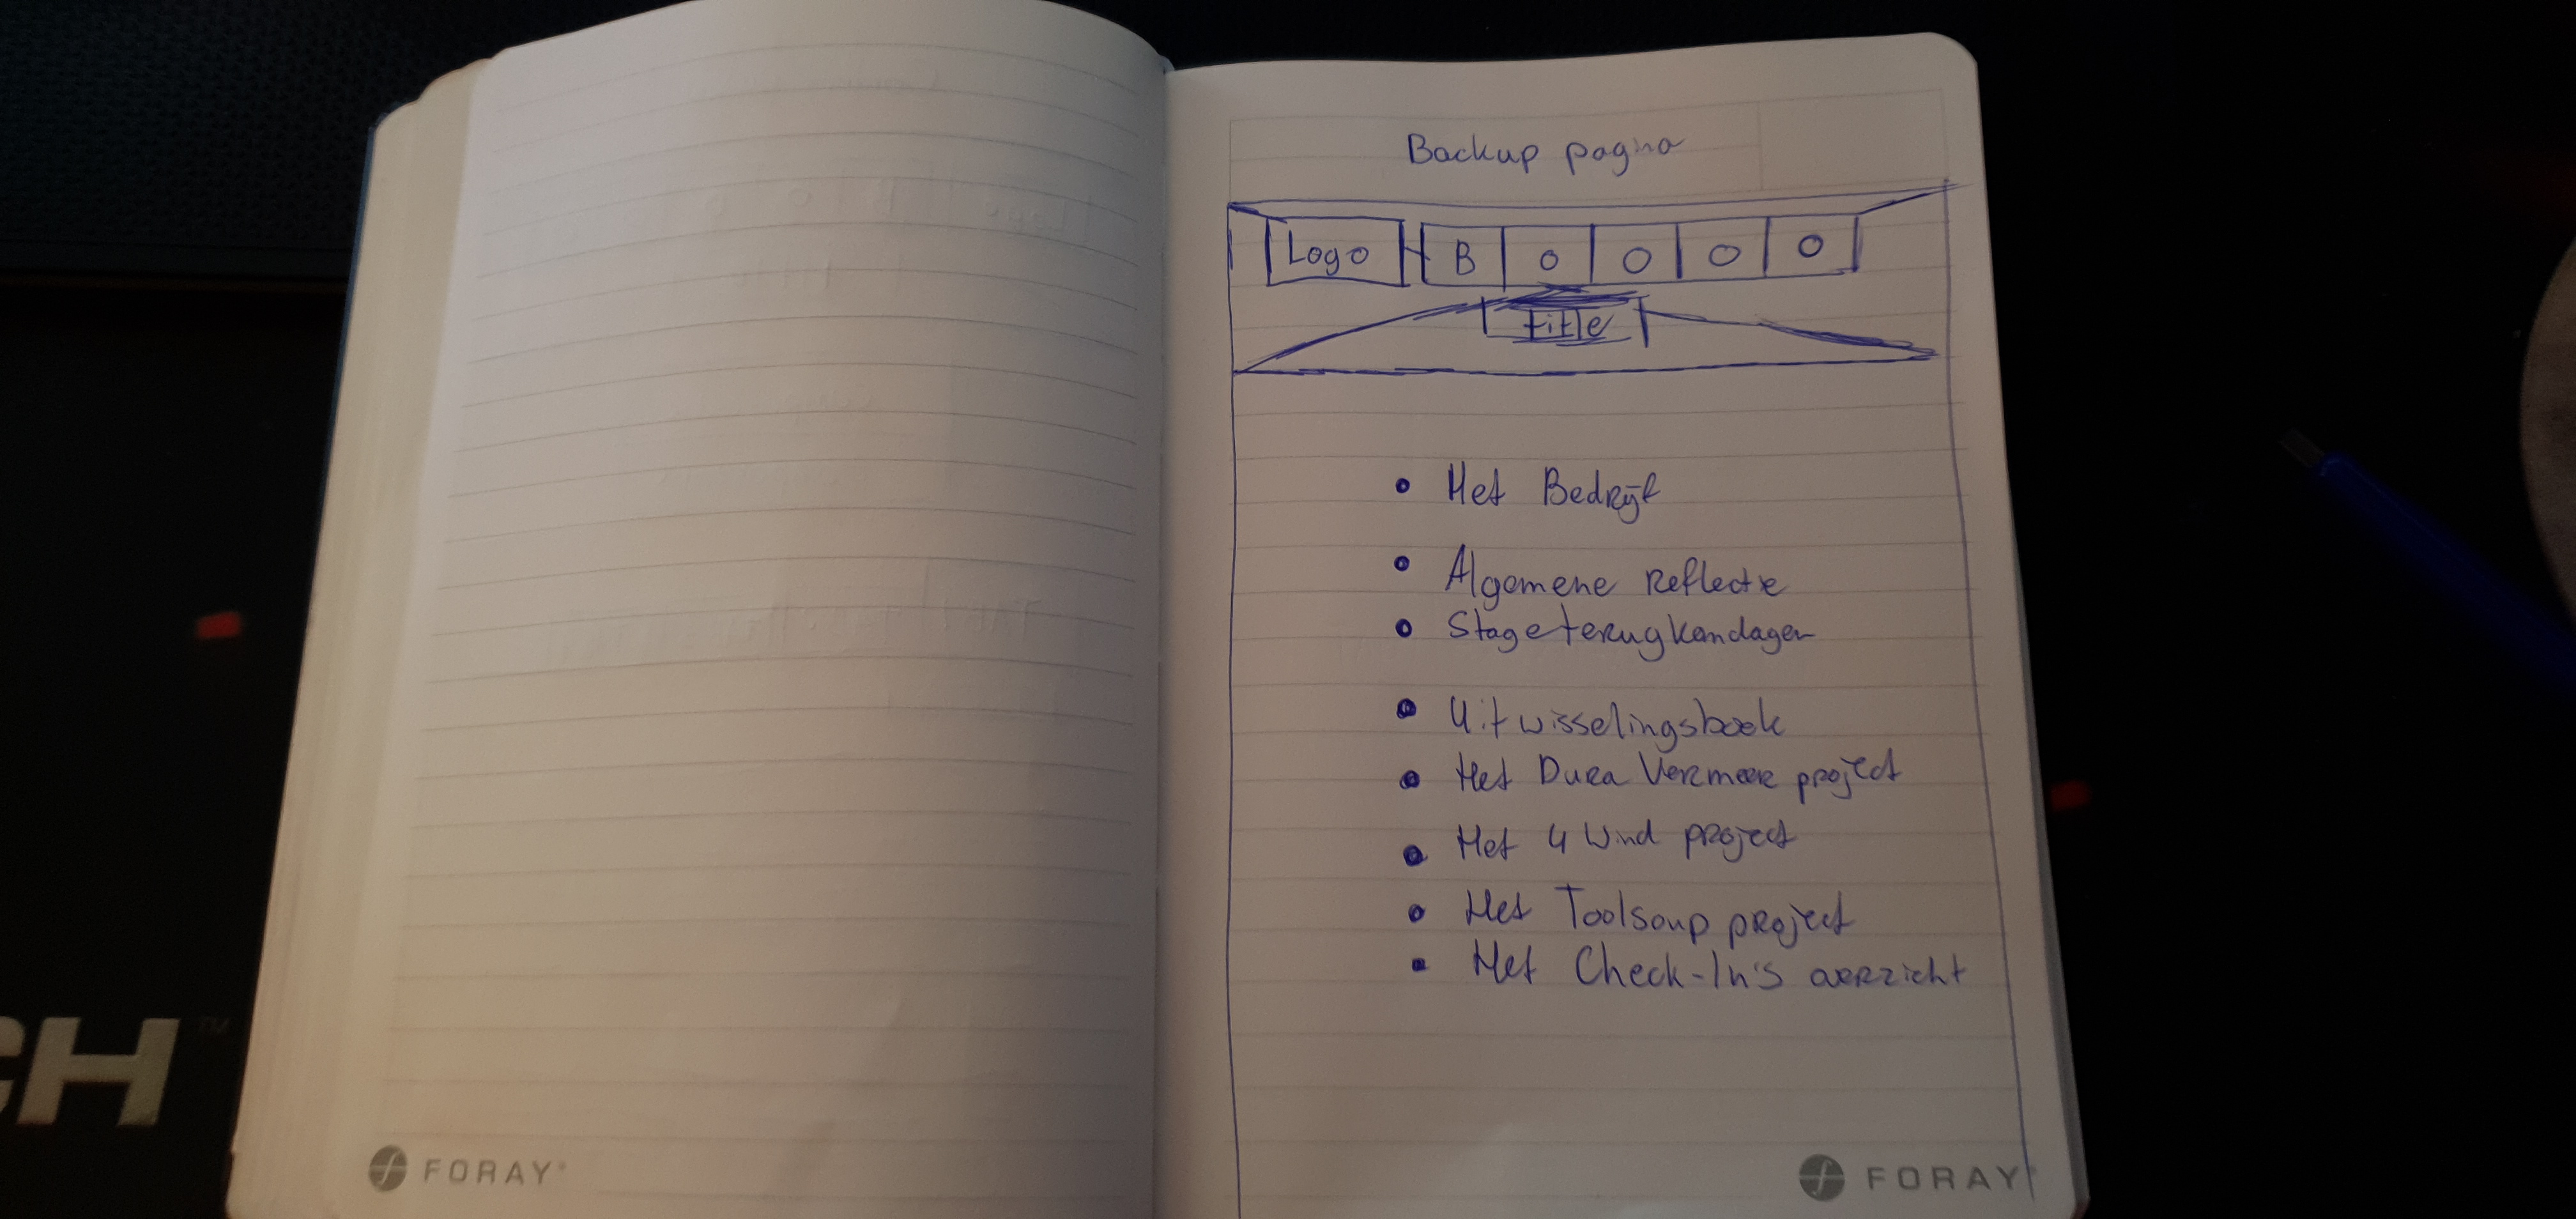 Backup pagina
Logo B O O O O
title
Het Bedrijf
Algemene Reflectie
Stageterugkomdagen
Uitwisselingsboek
Het Dura Vermeer project
Het 4 Wind project
Het Toolsoup project
Het Check-In's overzicht
CH™
FORAY
FORAY